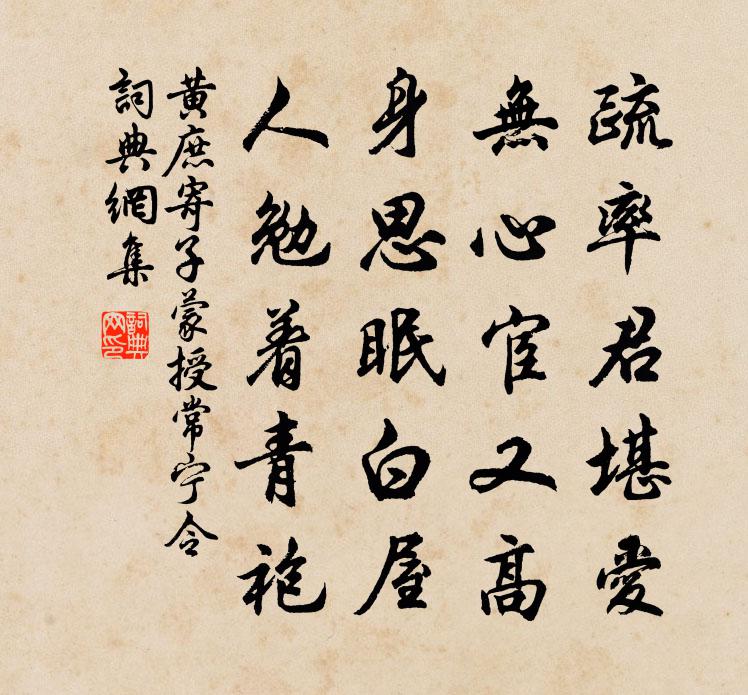 疏率君堪愛
無心宦又高
身思眠白屋
人勉着青袍
黃庶寄子蒙授常宁令
詞典網集
詞典
网印